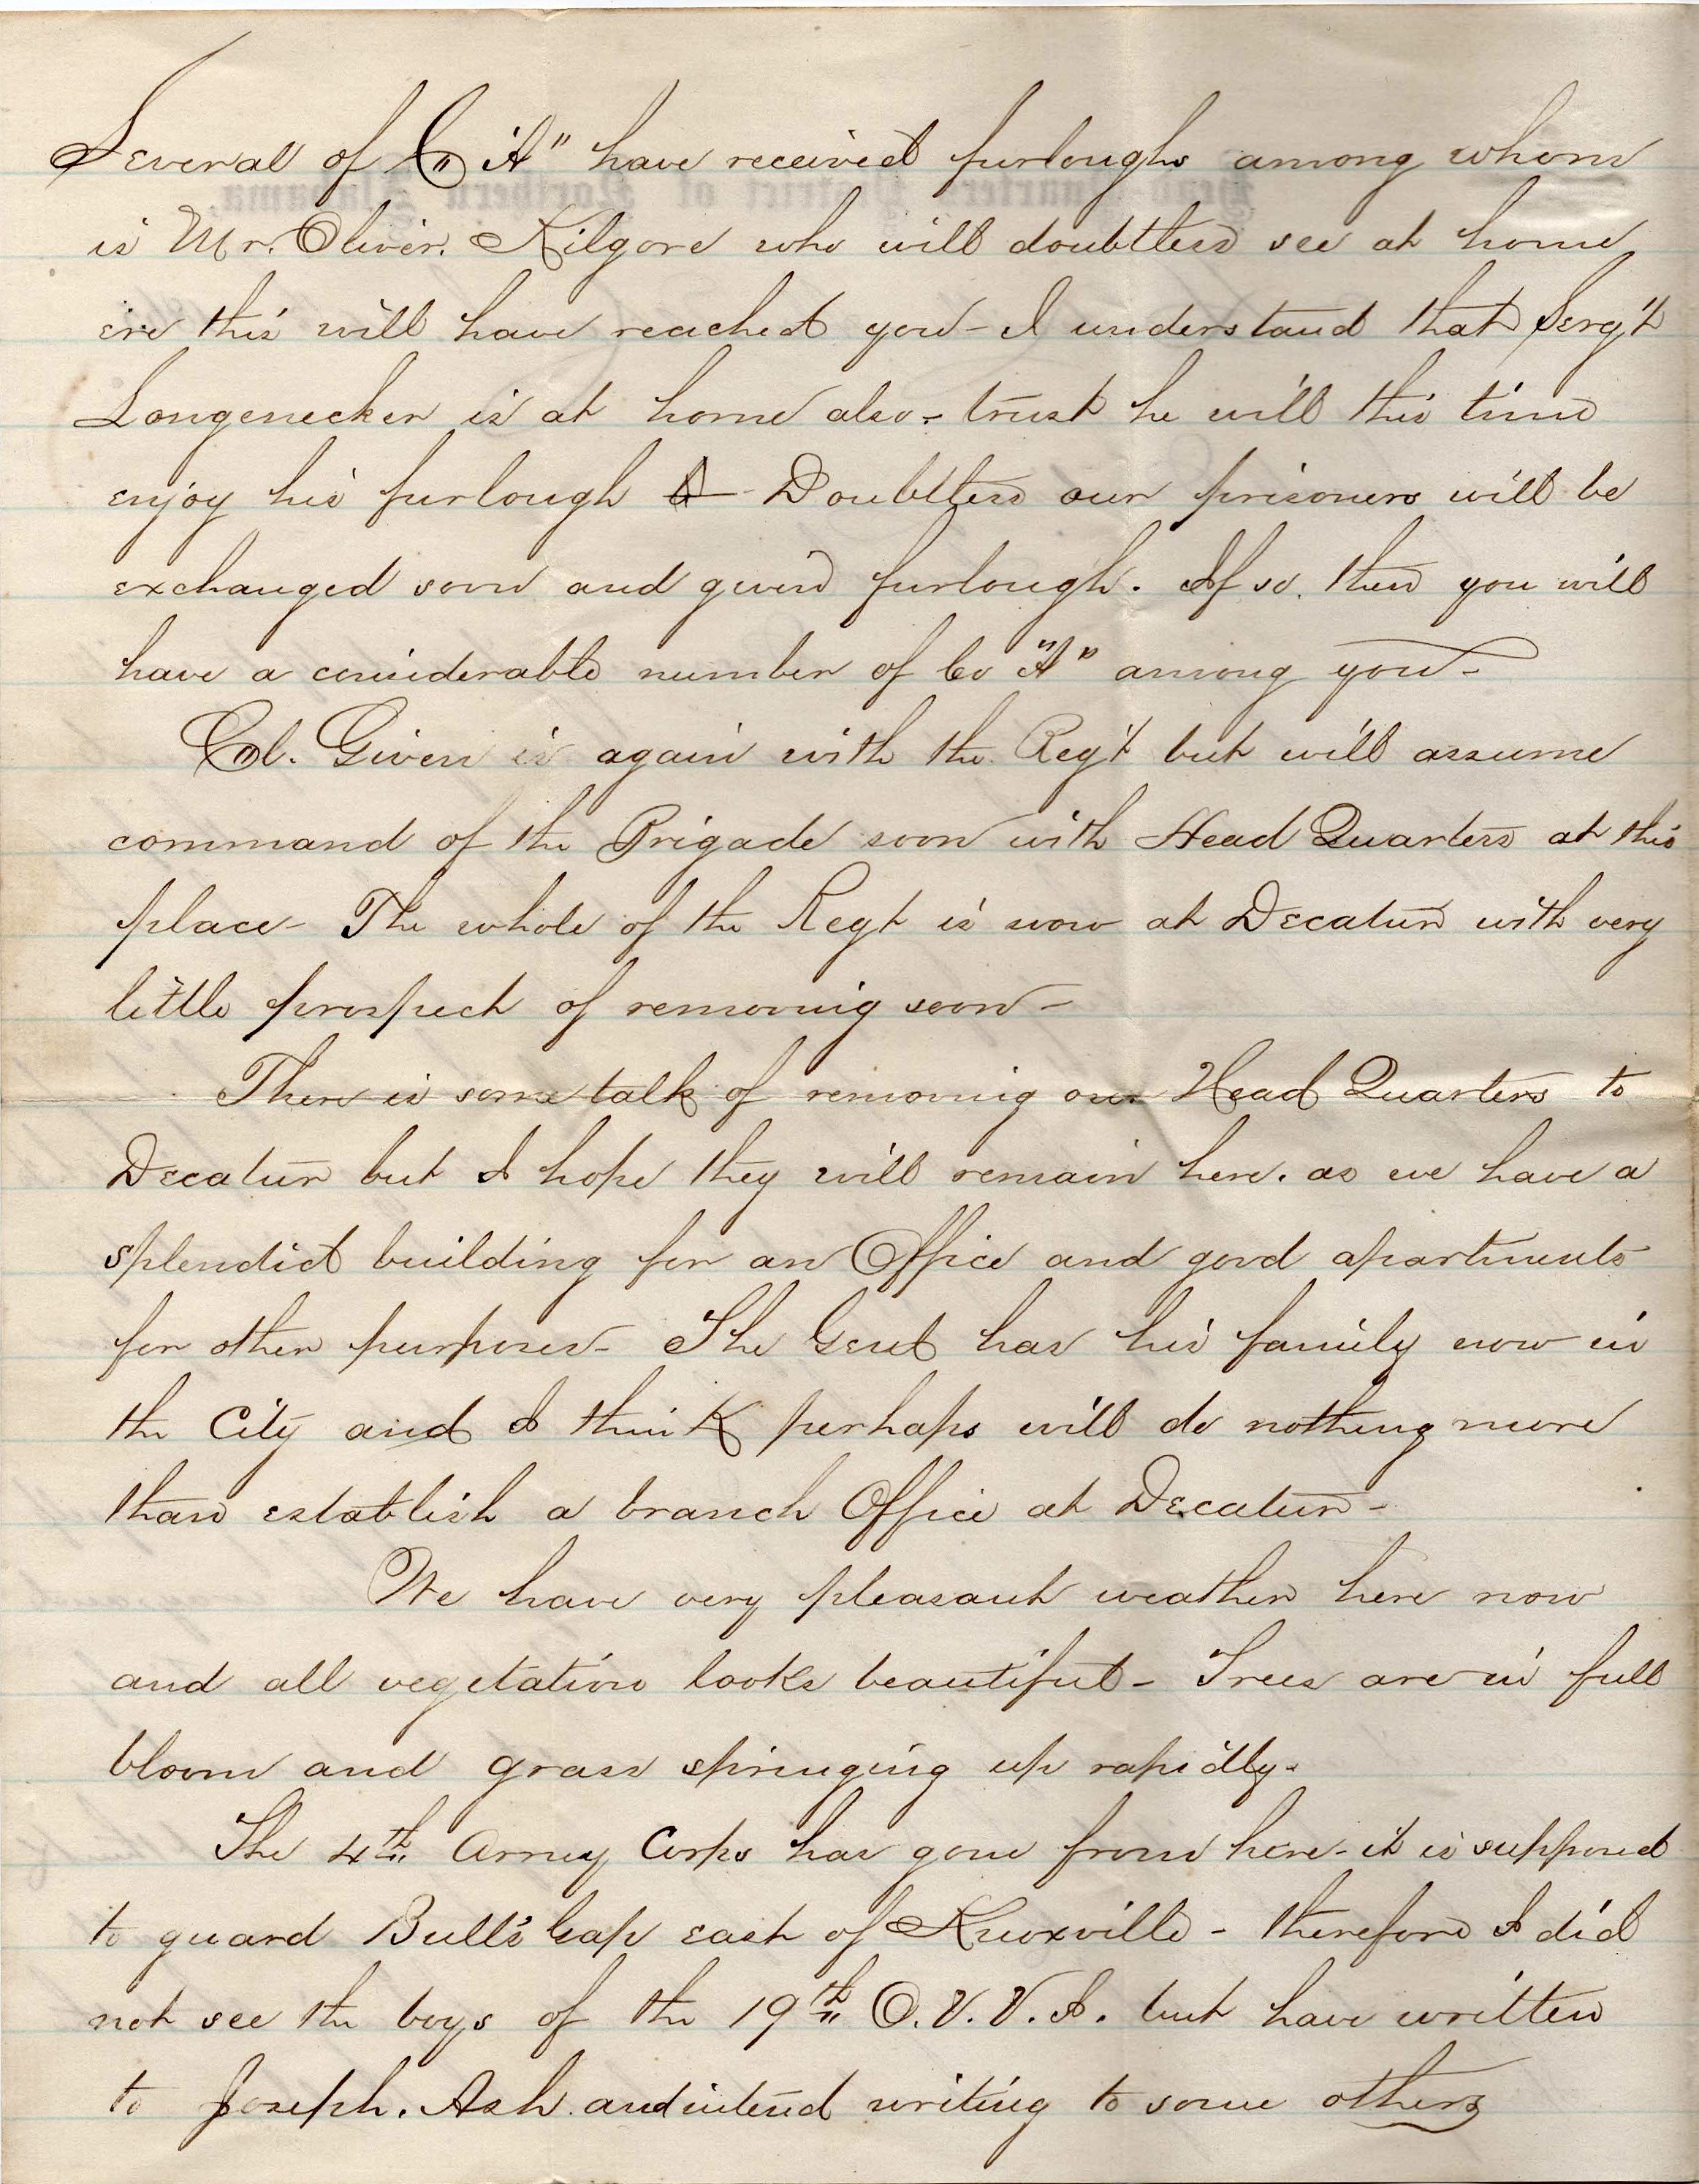 Several of Co "A" have received furloughs among whom
is Mr. Oliver. Kilgore who will doubtless see at home
ere this will have reached you - I understand that Serg't
Longenecker is at home also - trust he will this time
enjoy his furlough - Doubtless our prisoners will be
exchanged soon and given furlough. If so, then you will
have a considerable number of Co "A" among you -
Col. Given is again with the Reg't but will assume
command of the Brigade soon with Head Quarters at this
place - The whole of the Regt is now at Decatur with very
little prospect of removing soon -
There is some talk of removing our Head Quarters to
Decatur but I hope they will remain here. as we have a
splendid building for an Office and good apartments
for other purposes - The Genl has his family now in
the City and I think perhaps will do nothing more
than establish a branch Office at Decatur -
We have very pleasant weather here now
and all vegetation looks beautiful - Trees are in full
bloom and grass springing up rapidly.
The 4th Army Corps has gone from here - it is supposed
to guard Bull's Gap east of Knoxville - therefore I did
not see the boys of the 19th O.V.V.I. but have written
to Joseph. Ash. and intend writing to some others
Head Quarters District of Northern Alabama,